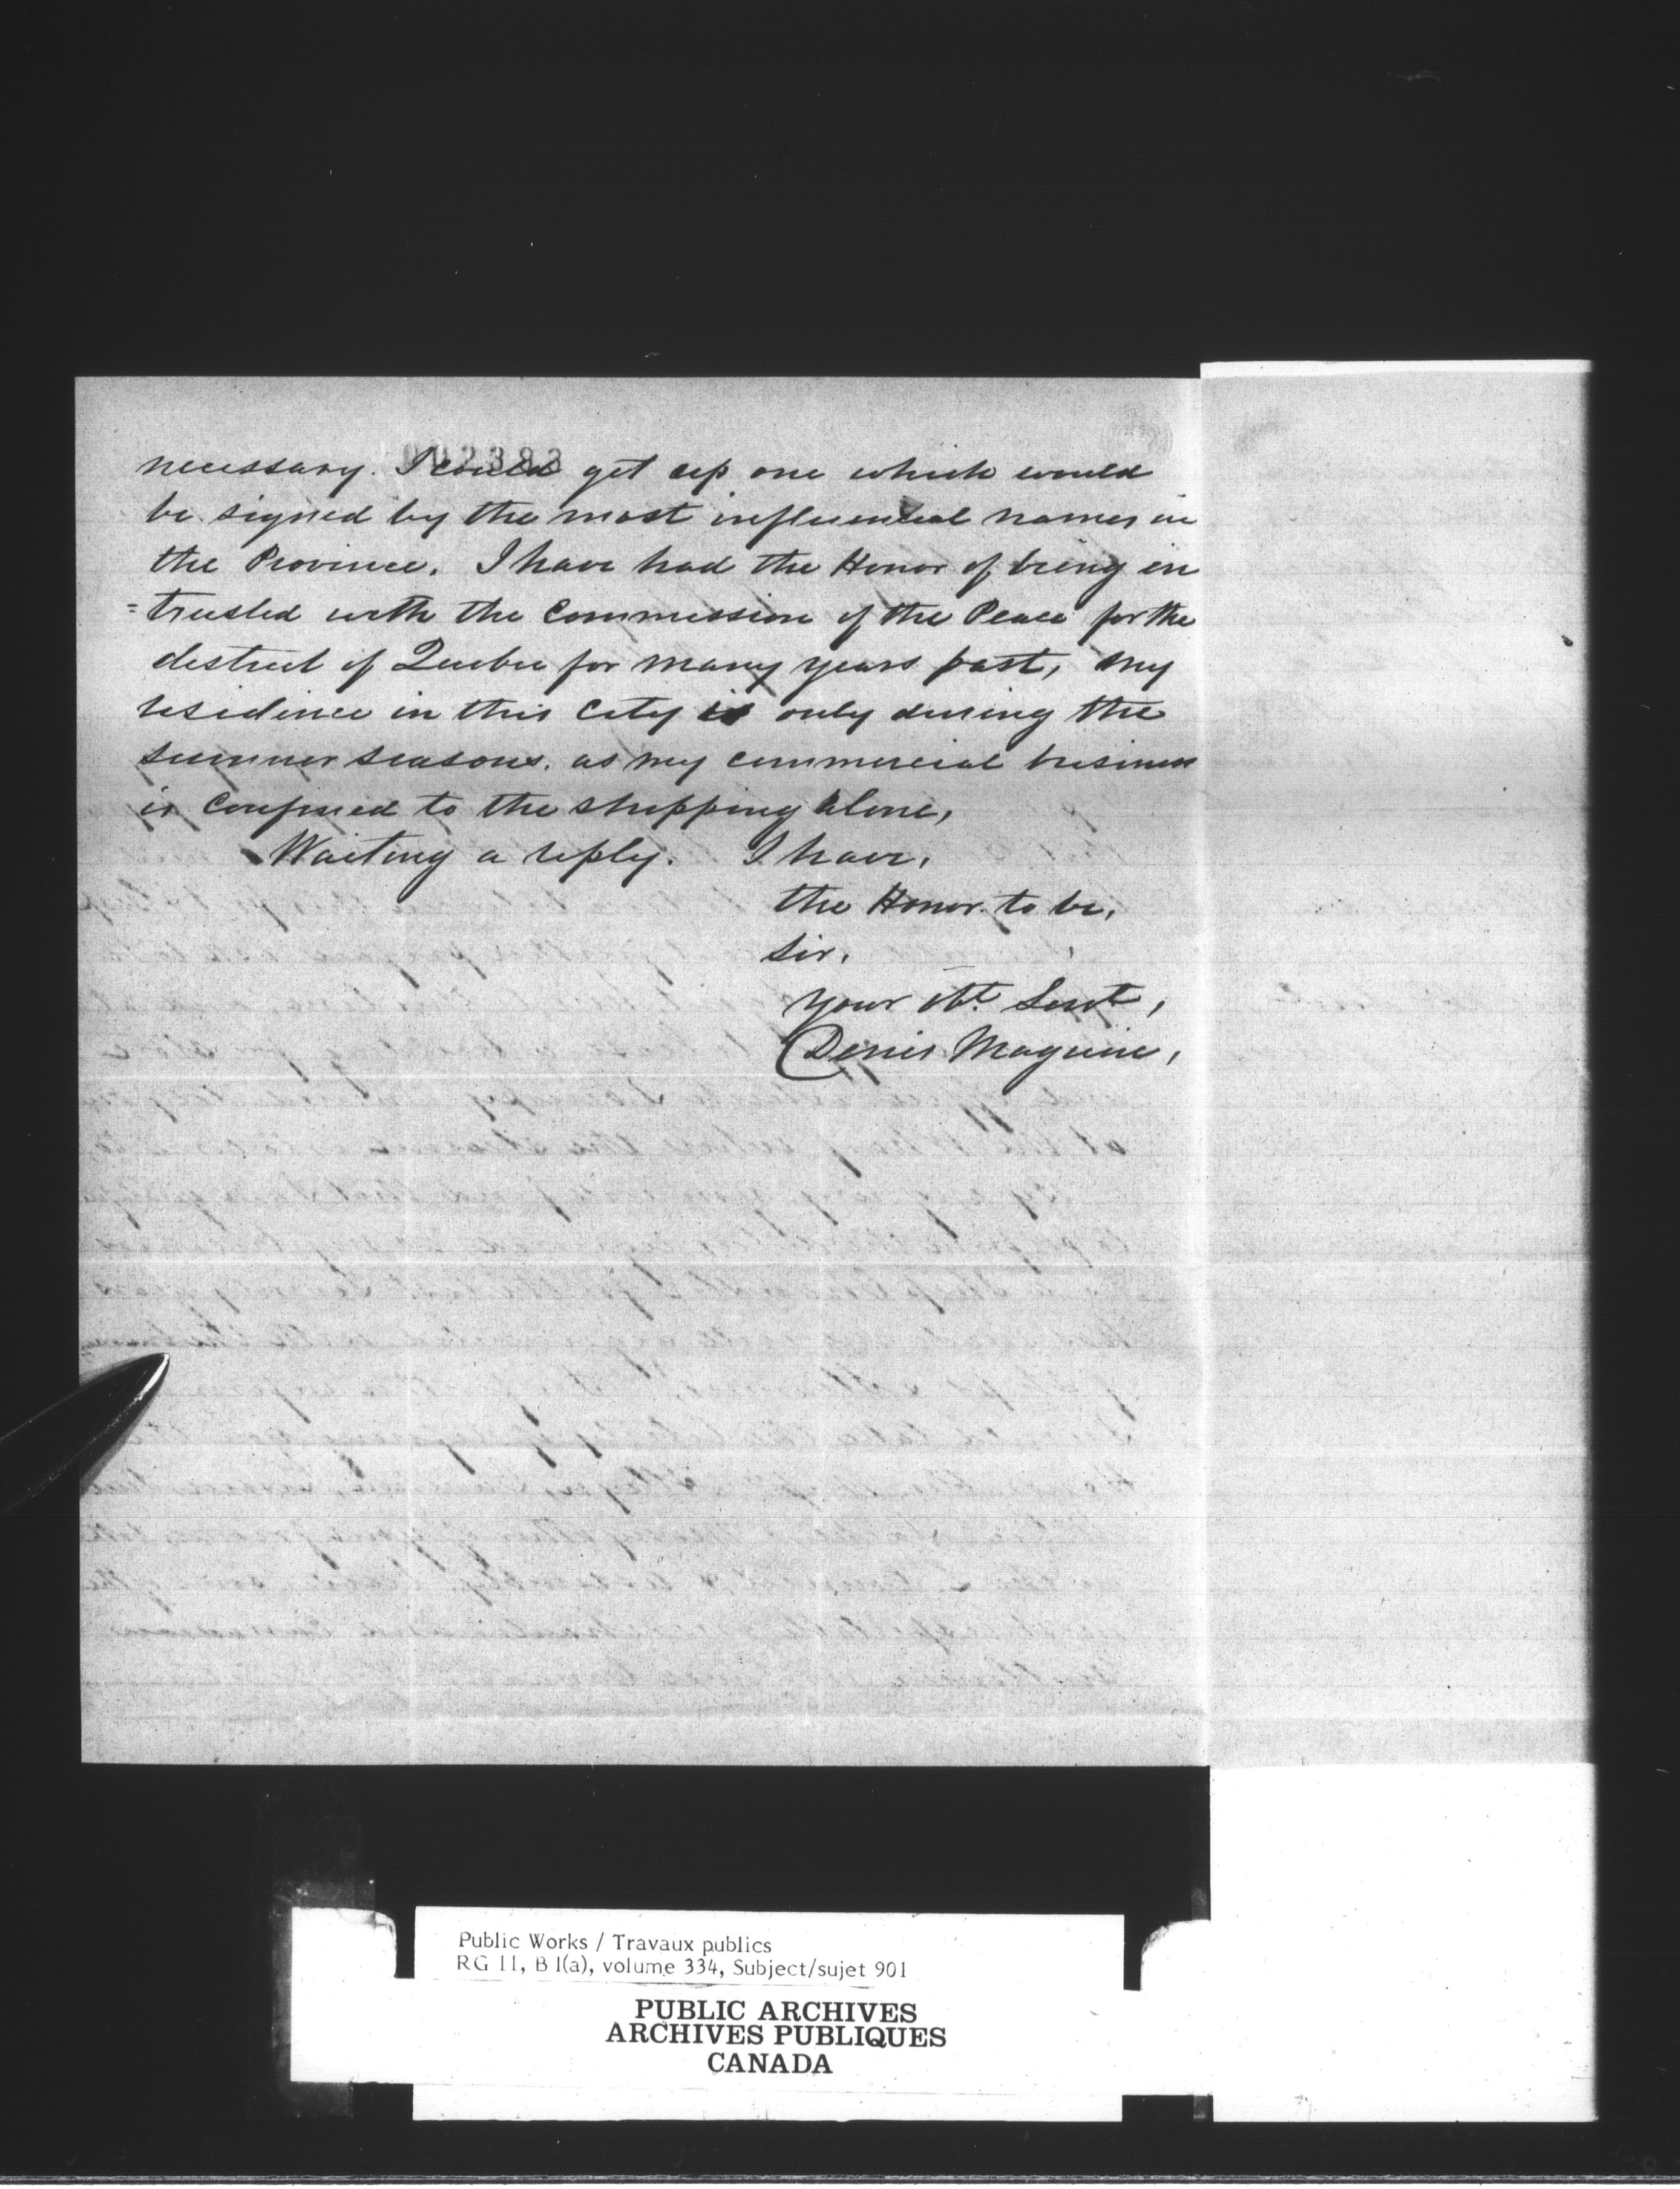 002383
necessary. I could get up one which would
be signed by the most influential names in
the Province. I have had the Honor of being in
=trusted with the Commission of the Peace for the
district of Quebec for many years past, my
residence in this City is only during the
summer seasons. as my commercial business
is confined to the shipping alone,
Waiting a reply. I have,
the Honor to be,
Sir,
your Obt. Servt,
Denis Maguire,
Public Works / Travaux publics
RG 11, B 1(a), volume 334, Subject/sujet 901
PUBLIC ARCHIVES
ARCHIVES PUBLIQUES
CANADA